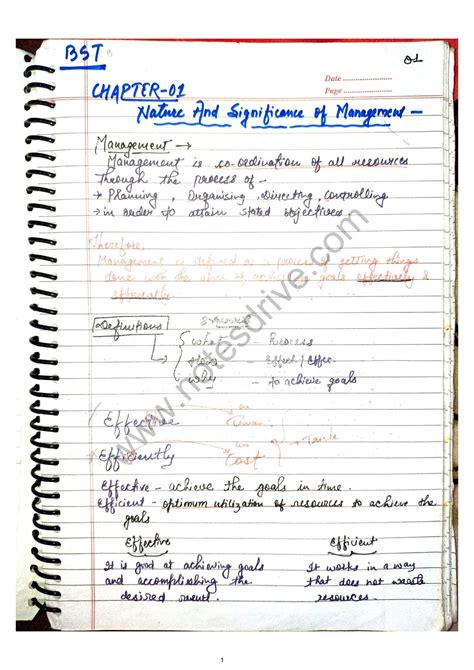 BST
01
Date
Page
CHAPTER-01
Nature And Significance of Management -
Management →
Management is co-ordination of all resources
through the process of -
→ Planning, Organising, Directing, Controlling
→ in order to attain stated objectives.
Therefore,
Management is defined as a process of getting things
done with the goals effectively &
efficiently.
Definitions
what - Process
How - Effect/Effec.
why - to achieve goals
Effective Time
Efficiently Cost
Effective - achieve the goals in time.
Efficient - optimum utilization of resources to achieve the
goals
Effective Efficient
It is good at achieving goals It works in a way
and accomplishing the that does not waste
desired result. resources.
www.notesdrive.com
1